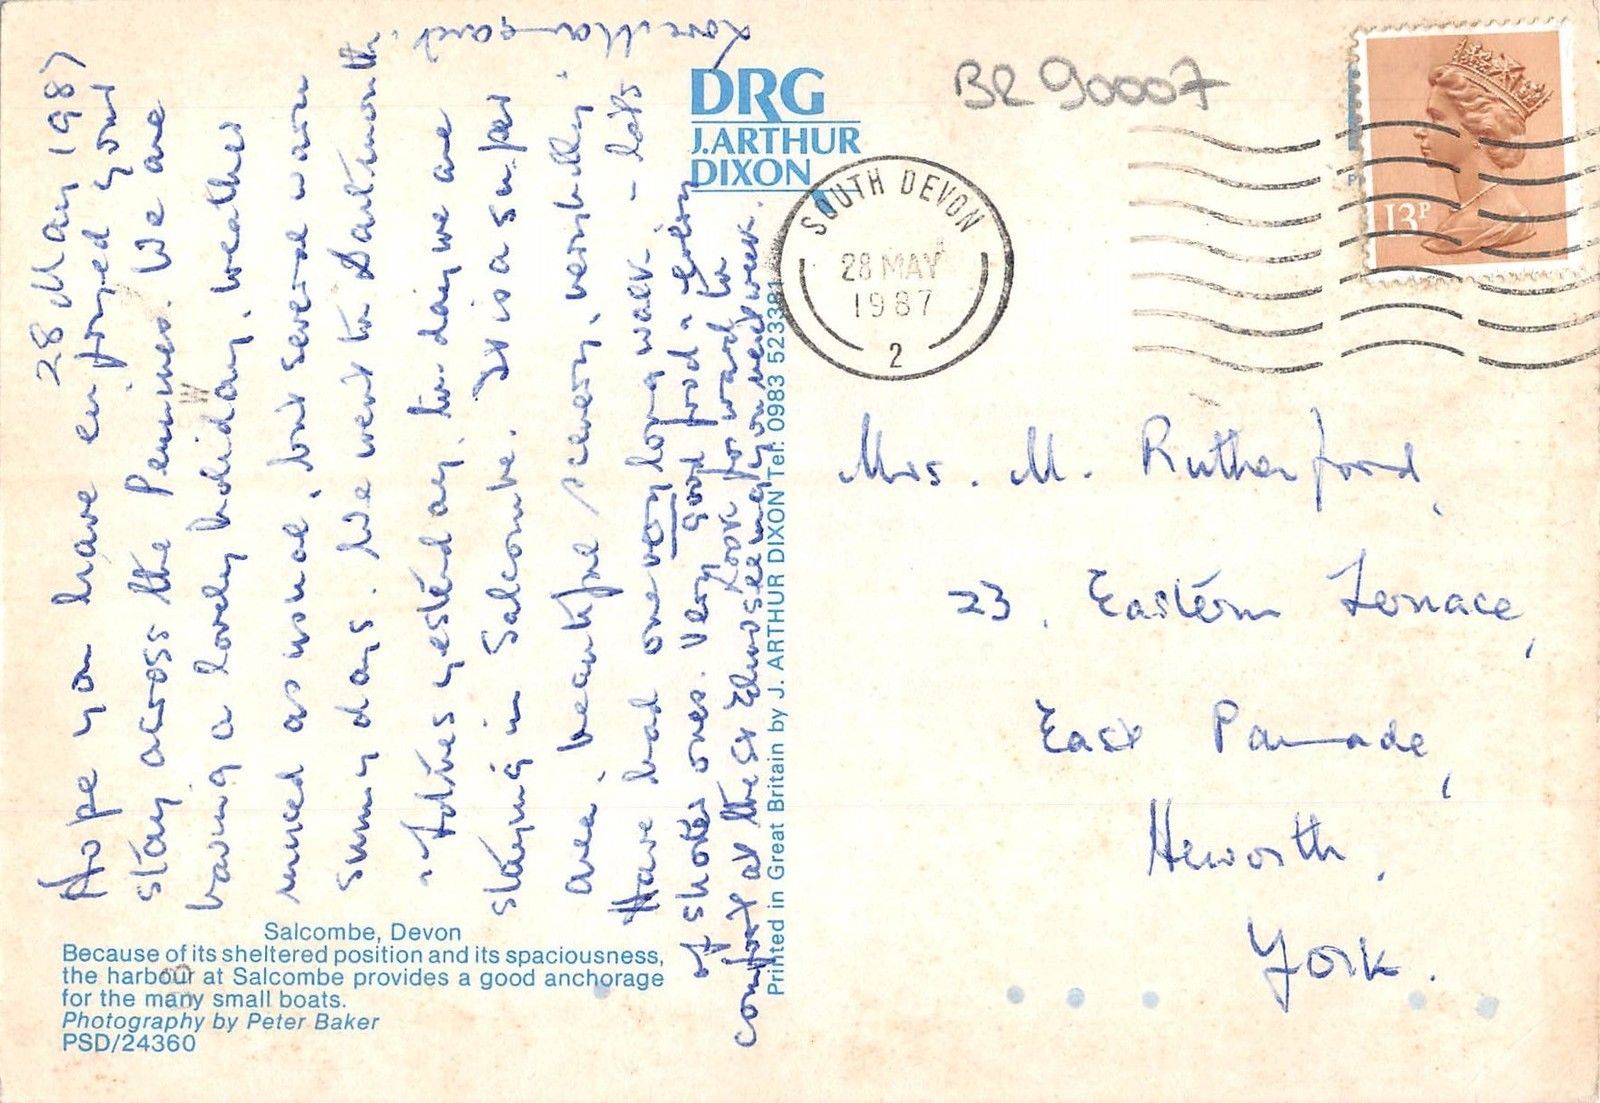 28 May 1987
Hope you have enjoyed your
stay across the Pennines. We are
having a lovely holiday, weather
mixed as usual, but several warm
sunny days. We went to Dartmouth
& Totnes yesterday, to-day we are
staying in Salcombe. It is a super
area, beautiful scenery,
Have had one very long walk - lots
of shorter ones. Very good food & every
comfort at the St Elmo Look forward to
seeing you next week.
Love
DRG
J.ARTHUR
DIXON
BR 90007
SOUTH DEVON
28 MAY
1987
2
13P
Mrs. M. Rutherford,
23. Eastern Terrace,
East Parade,
Heworth,
York.
Printed in Great Britain by J. ARTHUR DIXON Tel: 0983 523381
Salcombe, Devon
Because of its sheltered position and its spaciousness,
the harbour at Salcombe provides a good anchorage
for the many small boats.
Photography by Peter Baker
PSD/24360